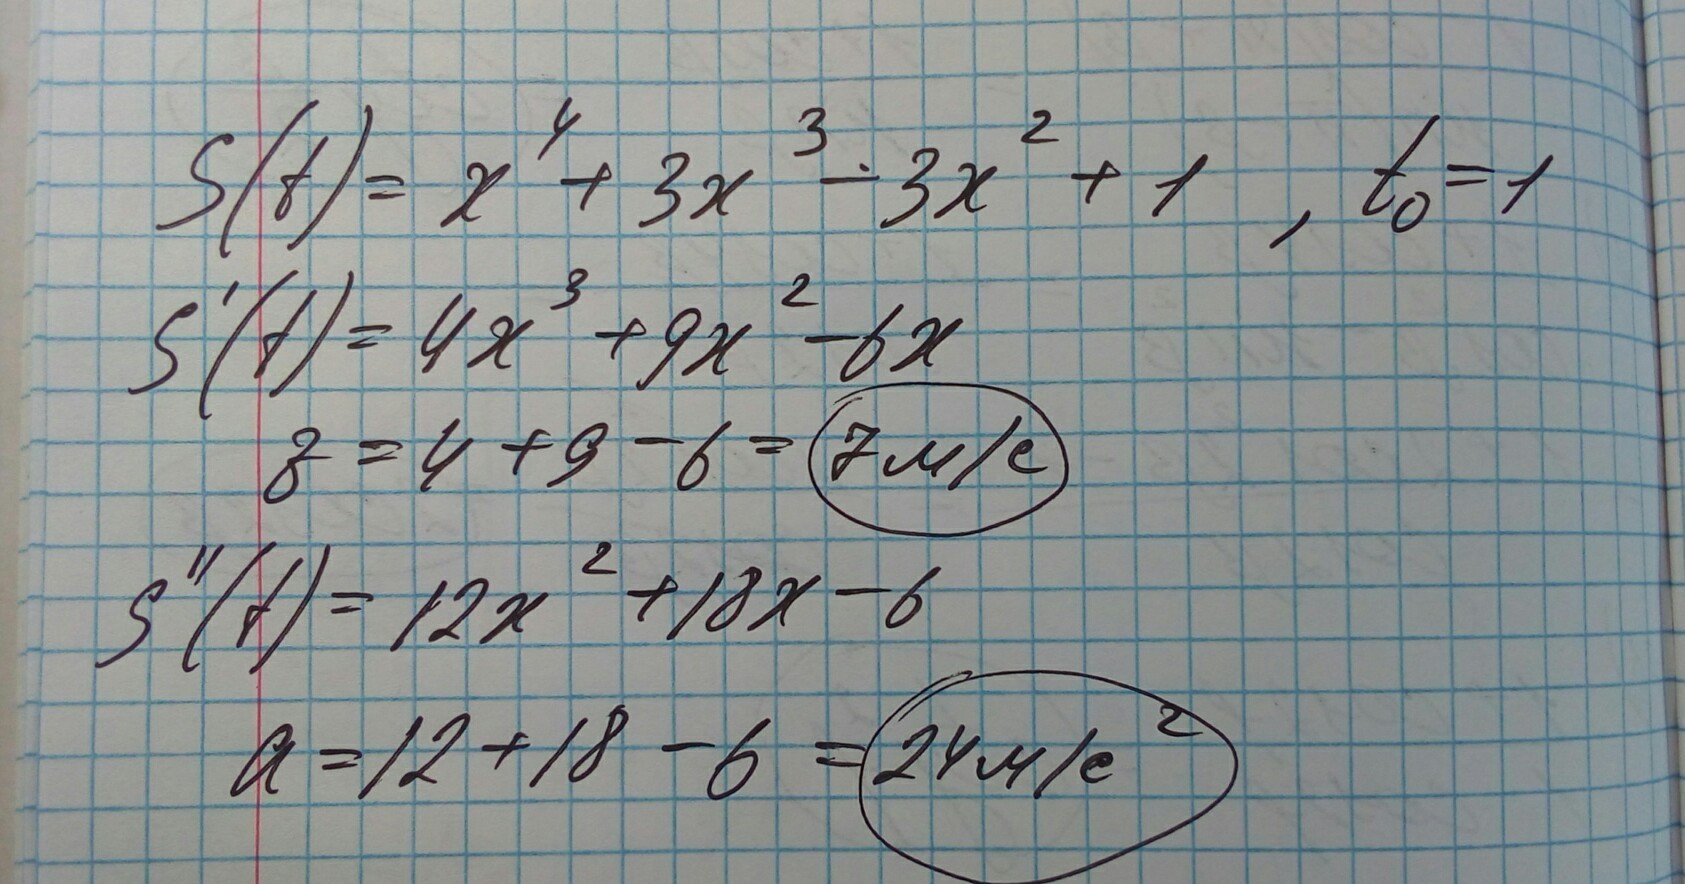 S(t) = x⁴ + 3x³ - 3x² + 1 , t₀ = 1
S'(t) = 4x³ + 9x² - 6x
з = 4 + 9 - 6 = 7 м/с
S''(t) = 12x² + 18x - 6
a = 12 + 18 - 6 = 24 м/с²